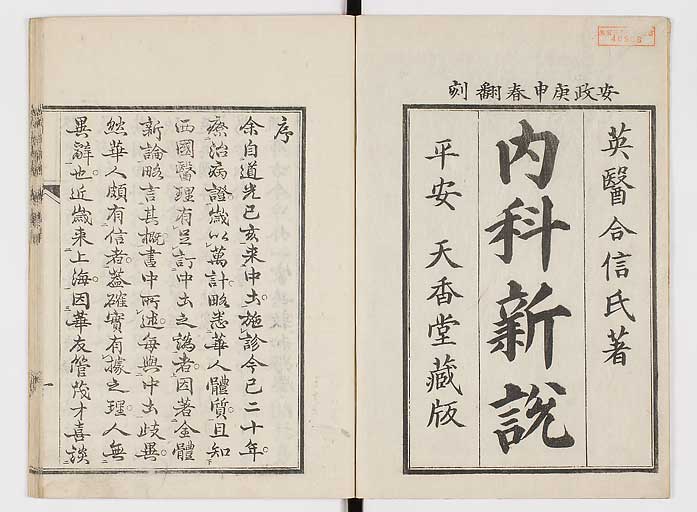 安政庚申春翻刻
英醫合信氏著
内科新說
平安 天香堂藏版
序
余自道光己亥來中土施診今已二十年。
療治病證歲以萬計略悉華人體質且知
西國醫理有足訂中土之譌者因著全體
新論略言其概書中所述每與中土歧異
然華人頗有信者蓋確實有據之理人無
異辭也近歲來上海因華友管茂才喜談
一